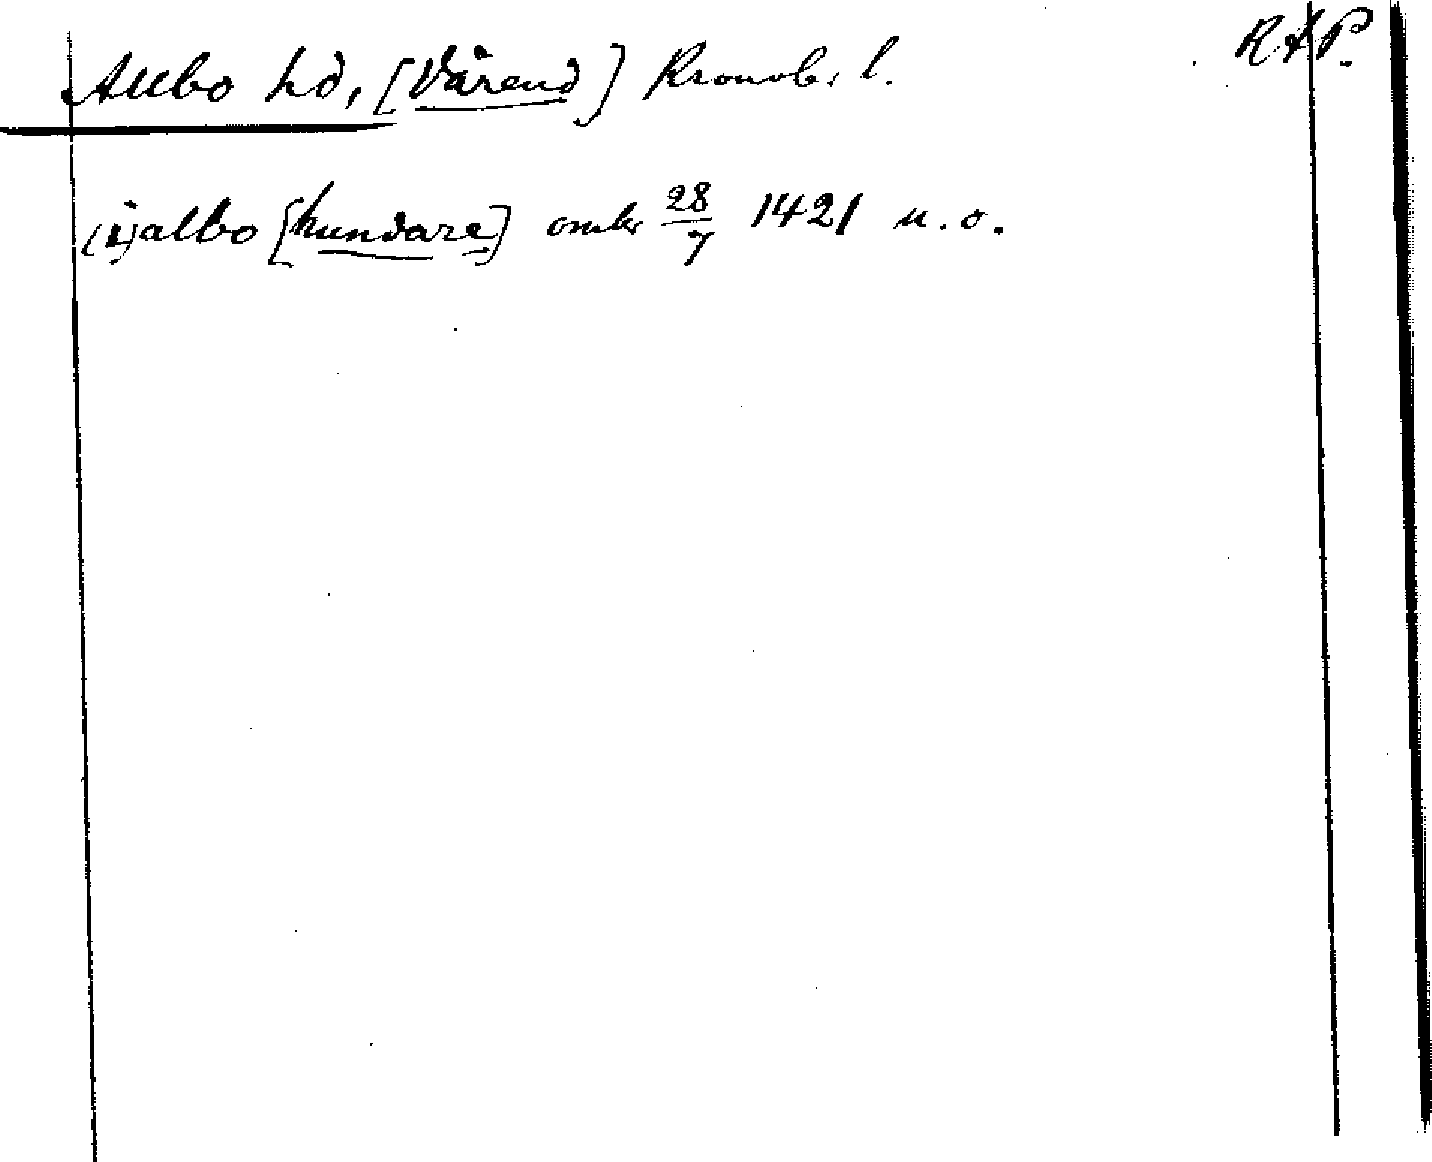 Allbo hd, [Värend] Kronob. l. RAP.
(i) albo [hundare] omkr 28/7 1421 u. o.